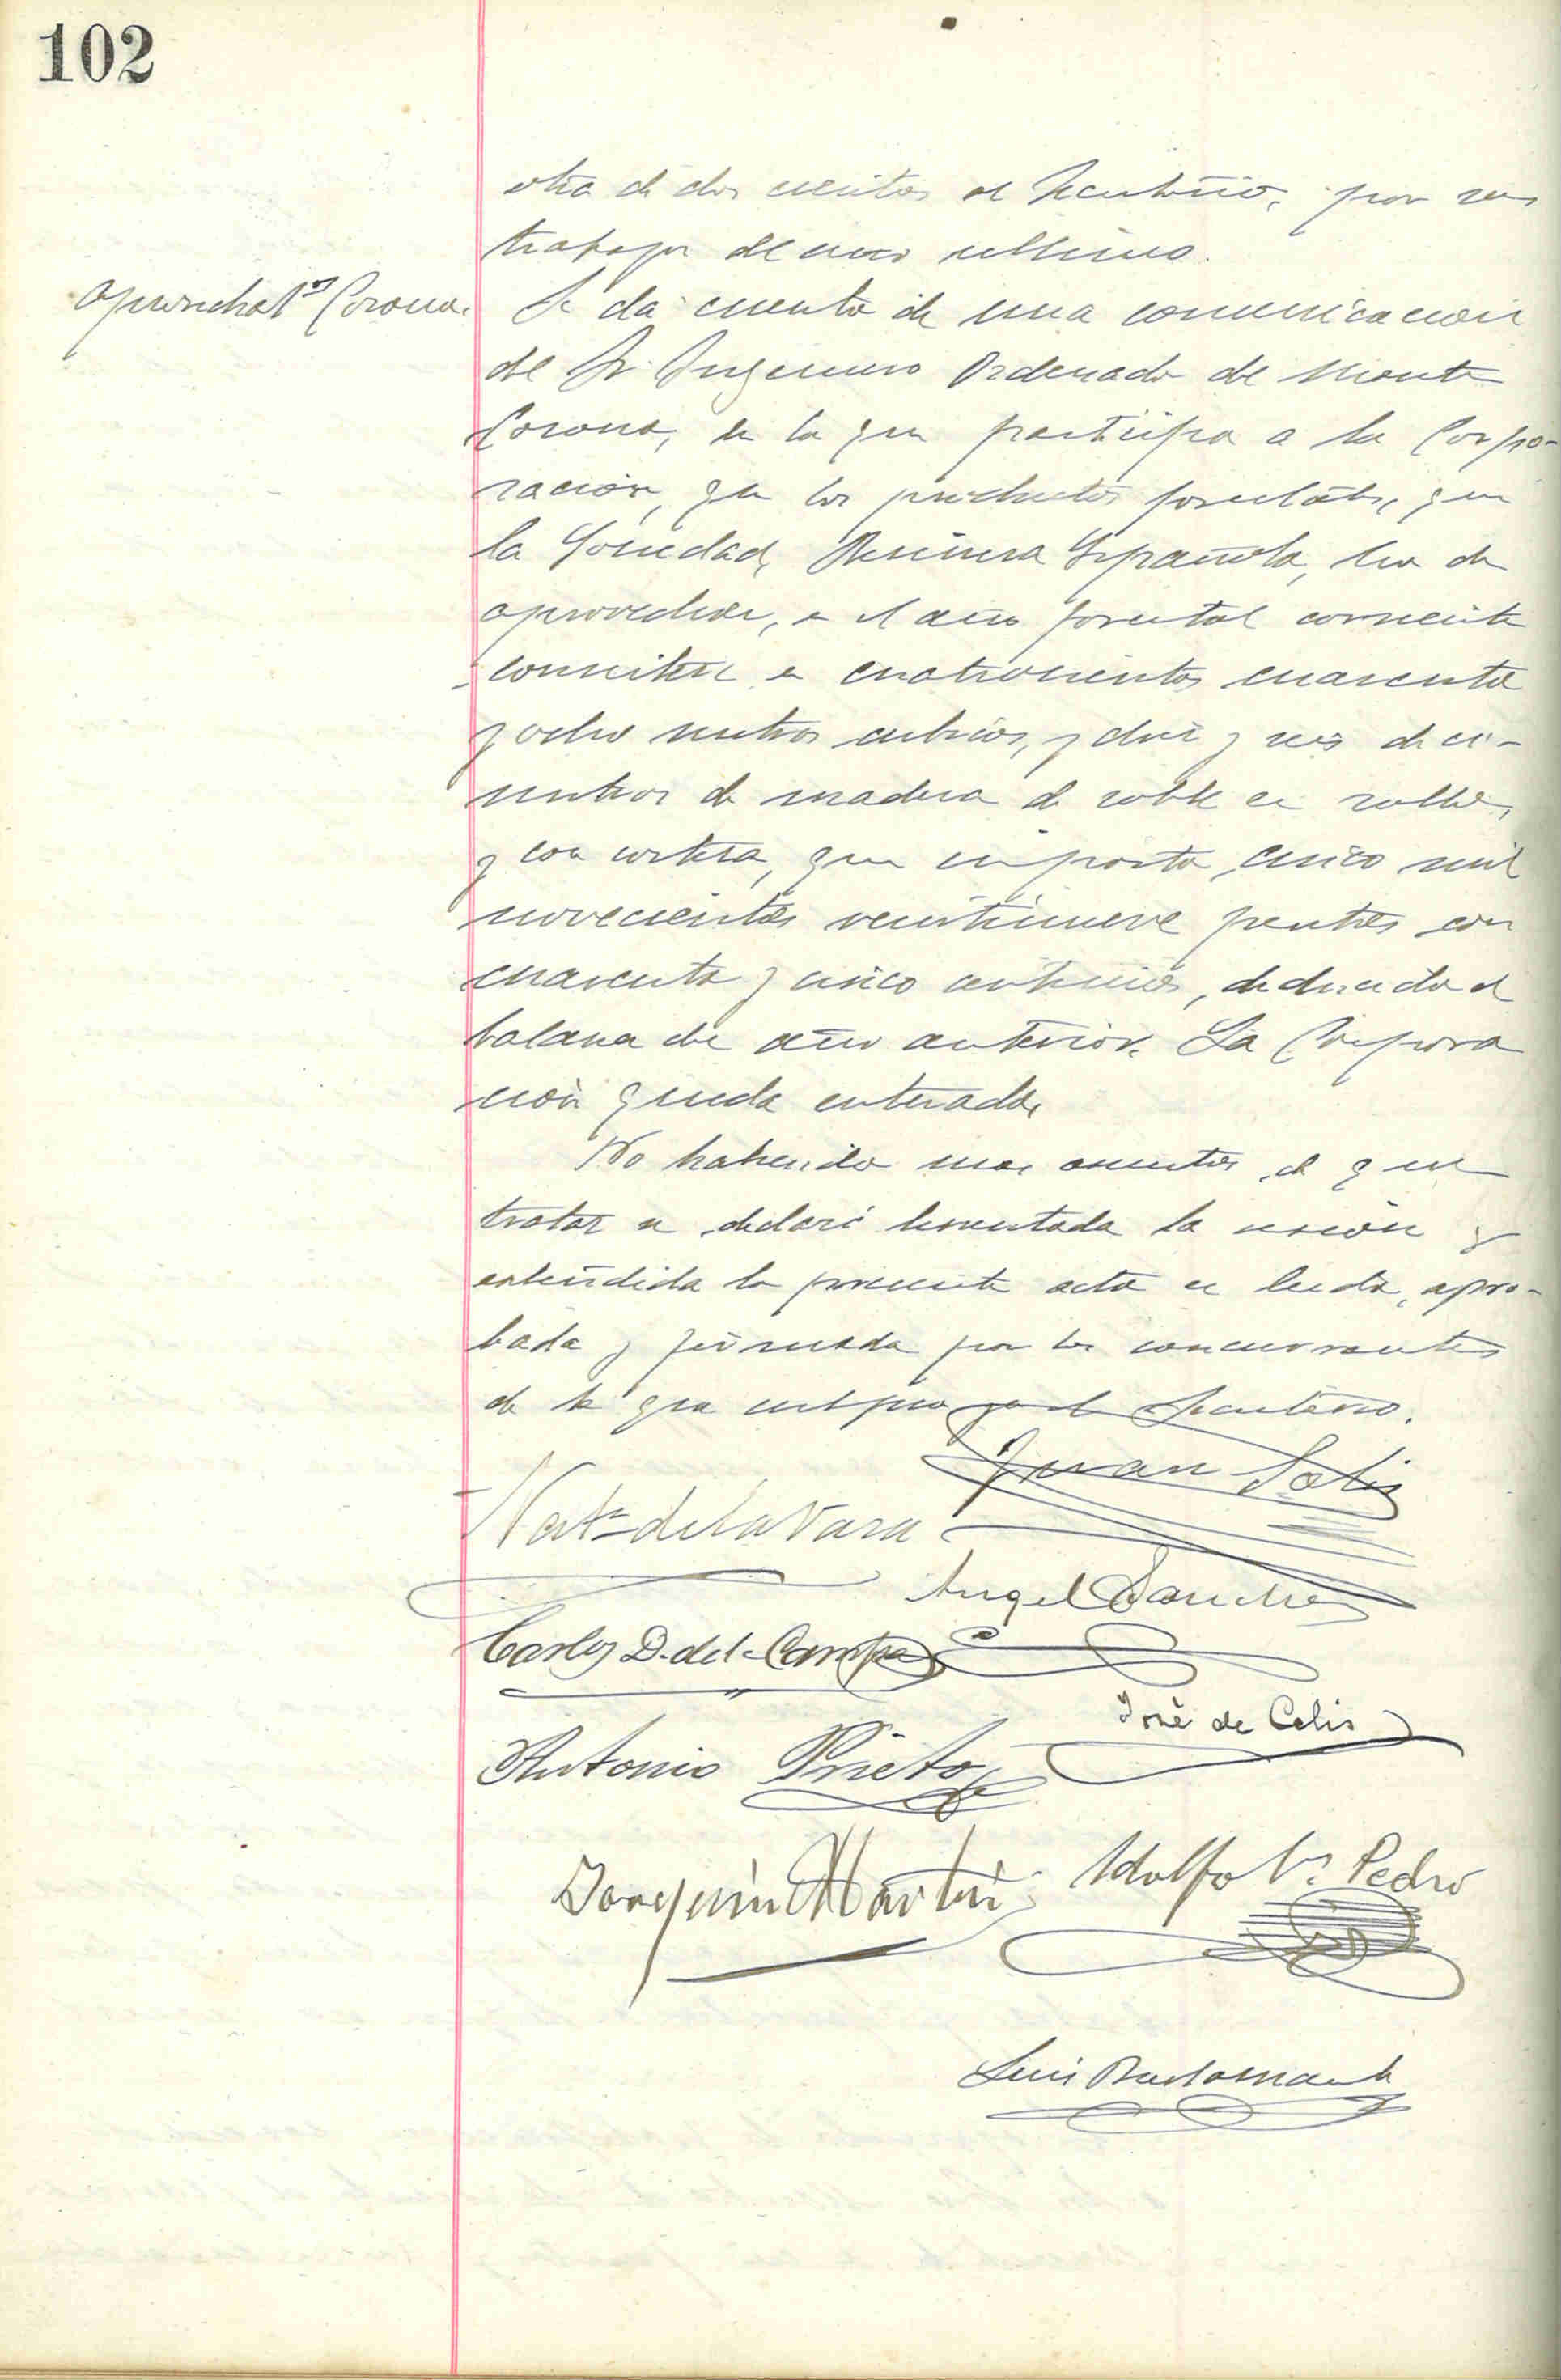 102
otra de dos cientas al Secretario, por sus
trabajos del año ultimo.
Aprovechatº Corona.
Se da cuenta de una comunicacion
del Sr. Ingeniero Ordenador del Monte
Corona, en la que participa a la Corpo-
ración, que los productos forestales, que
la Sociedad, Resinera Española, ha de
aprovechar, en el año forestal corriente
consisten en cuatrocientos cuarenta
y ocho metros cubicos, y diez y seis deci-
metros de madera de roble en rollo,
y con corteza, que importa cinco mil
novecientas veintinueve pesetas con
cuarenta y cinco centimos, deducido el
balance del año anterior. La Corpora
ción queda enterada.
No habiendo mas asuntos de que
tratar se declaró levantada la sesión y
extendida la presente acta es leida, apro-
bada y firmada por los concurrentes
de lo que certifico yo el Secretario.
Juan Solis
de la Vara
Angel Sanchez
Carlos D. del Campo
José de Celis
Antonio Prieto
Joaquin Martin
Adolfo Pedro
Luis Bustamante